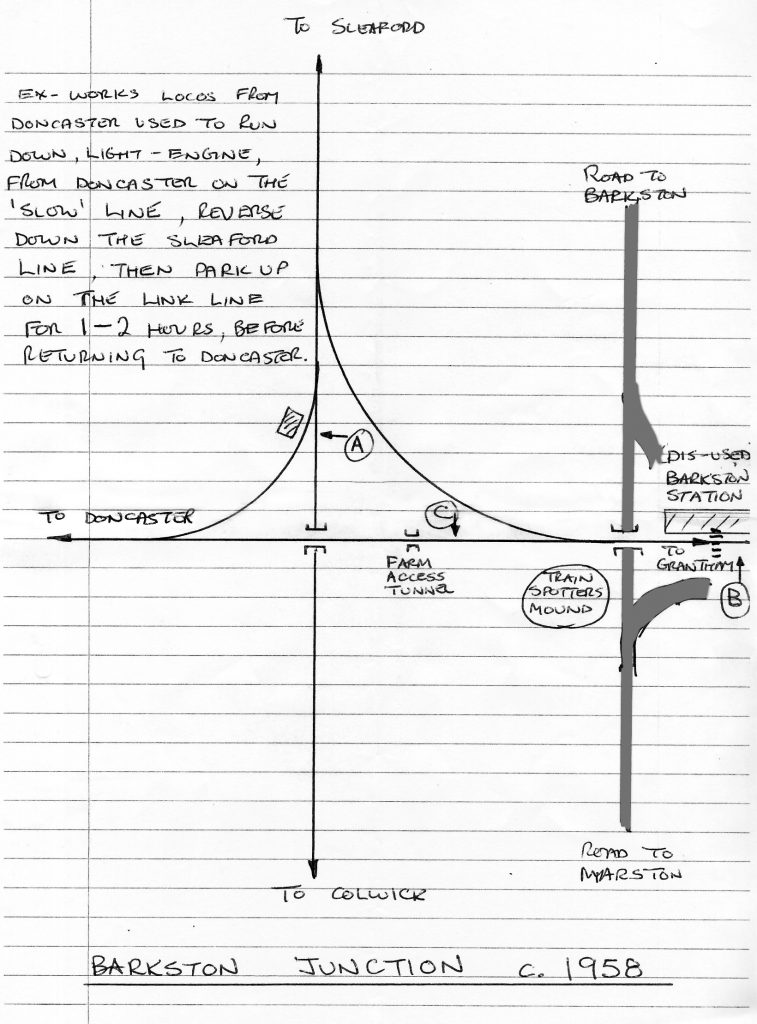 To SLEAFORD
EX-WORKS LOCOS FROM
DONCASTER USED TO RUN
DOWN, LIGHT-ENGINE,
FROM DONCASTER ON THE
'SLOW' LINE, REVERSE
DOWN THE SLEAFORD
LINE, THEN PARK UP
ON THE LINK LINE
FOR 1-2 HOURS, BEFORE
RETURNING TO DONCASTER.
ROAD TO
BARKSTON
A
DIS-USED
BARKSTON
STATION
C
TO DONCASTER
TO
GRANTHAM
FARM
ACCESS
TUNNEL
TRAIN
SPOTTERS
MOUND
B
ROAD TO
MARSTON
TO COLWICK
BARKSTON JUNCTION c. 1958